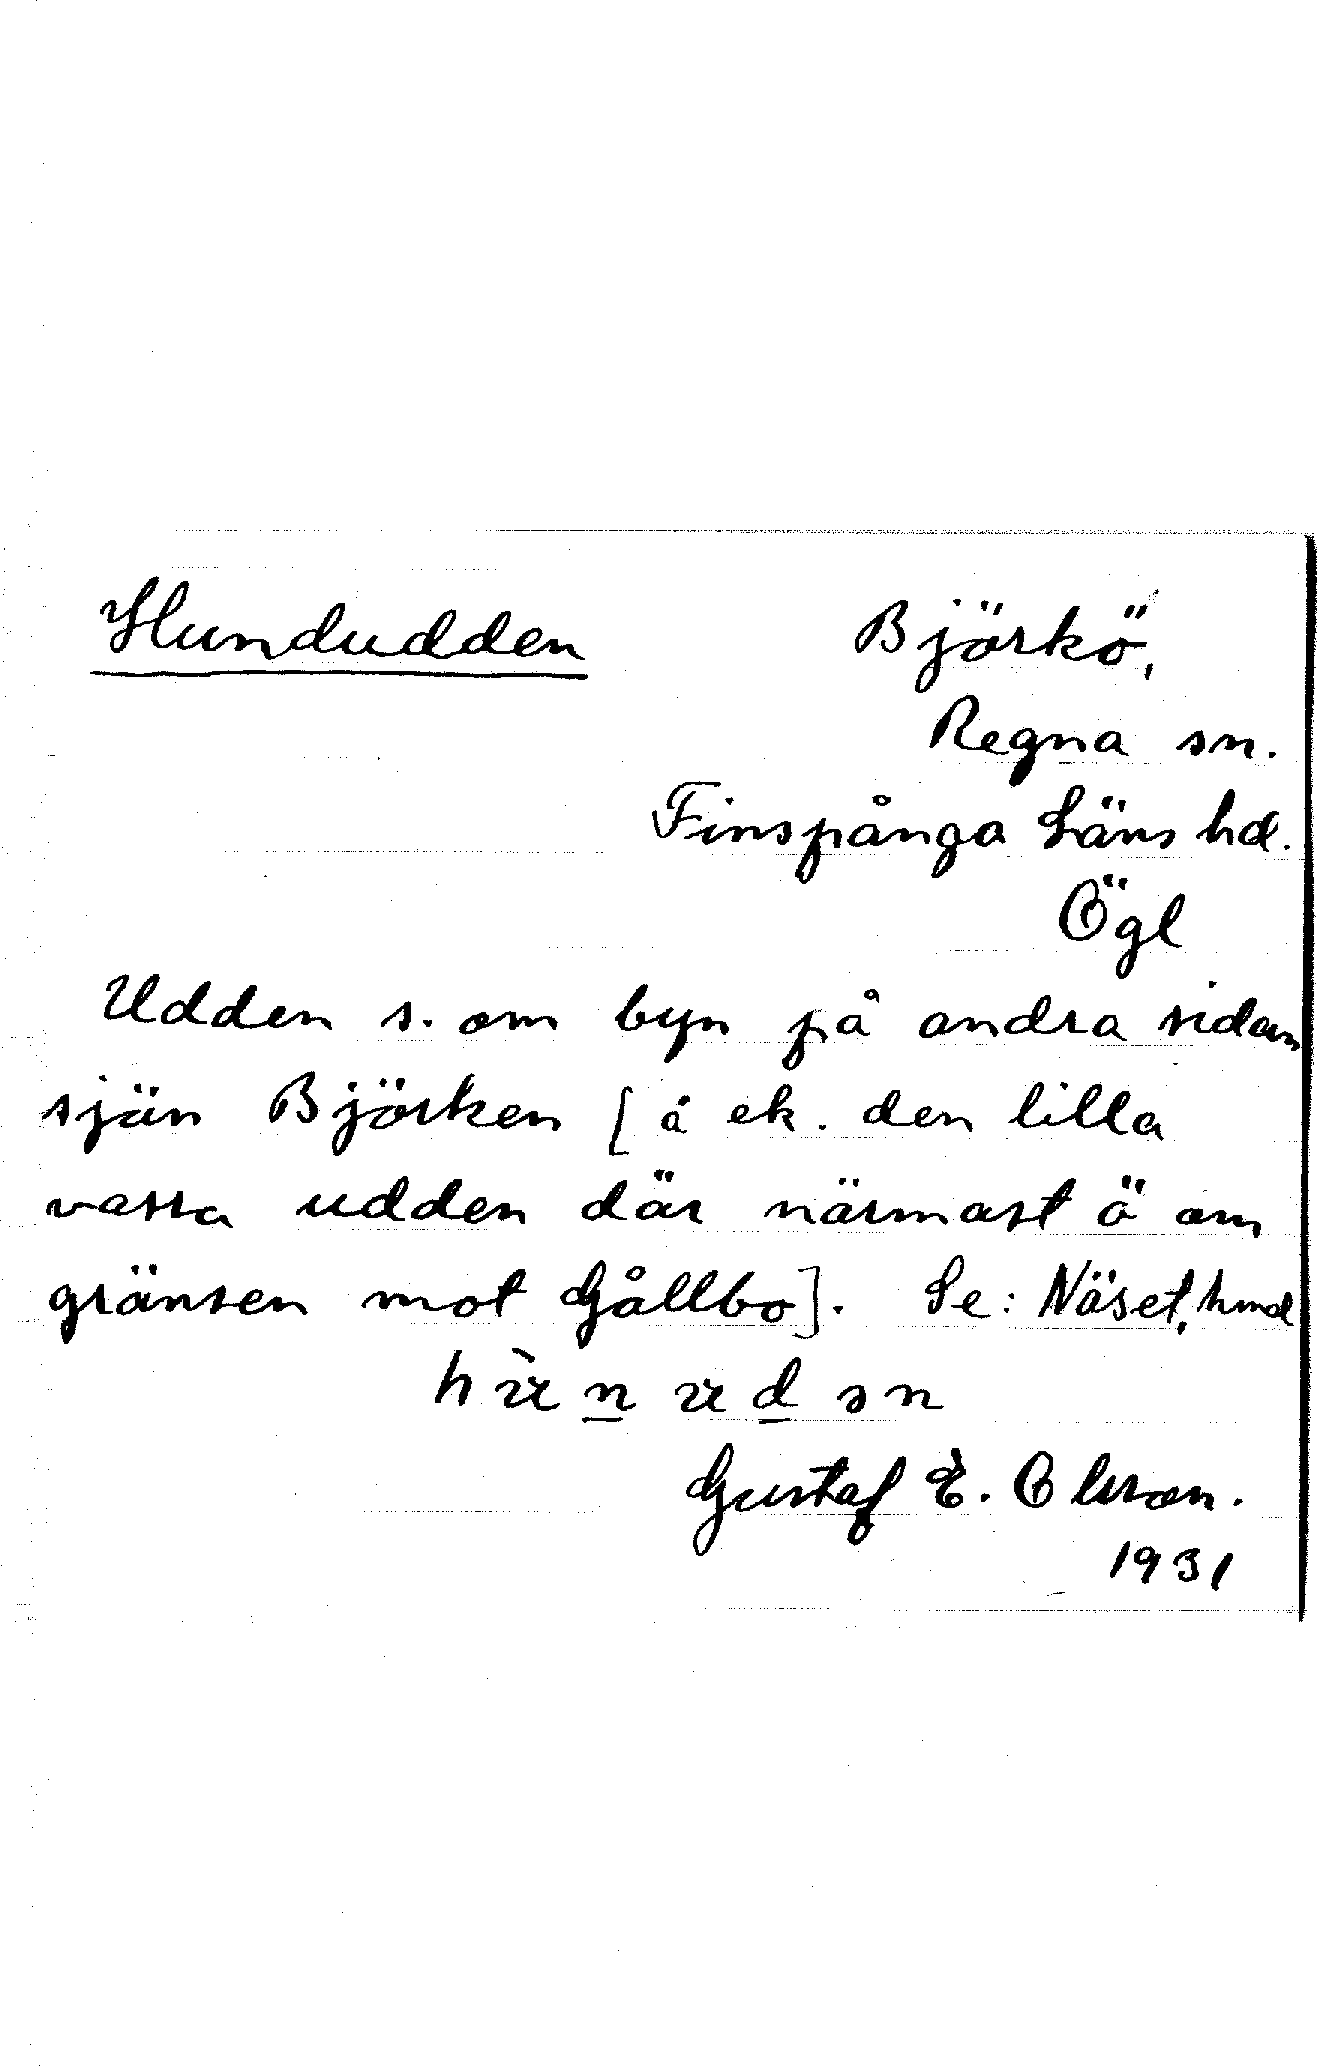 Hundudden
Björkö,
Regna sn.
Finspånga Läns hd.
Ögl
Udden s. om byn på andra sidan
sjön Björken [å ek. den lilla
vassa udden där närmast ö om
gränsen mot Gållbo]. Se: Näset, hund
Gustaf E. Olsson.
1931